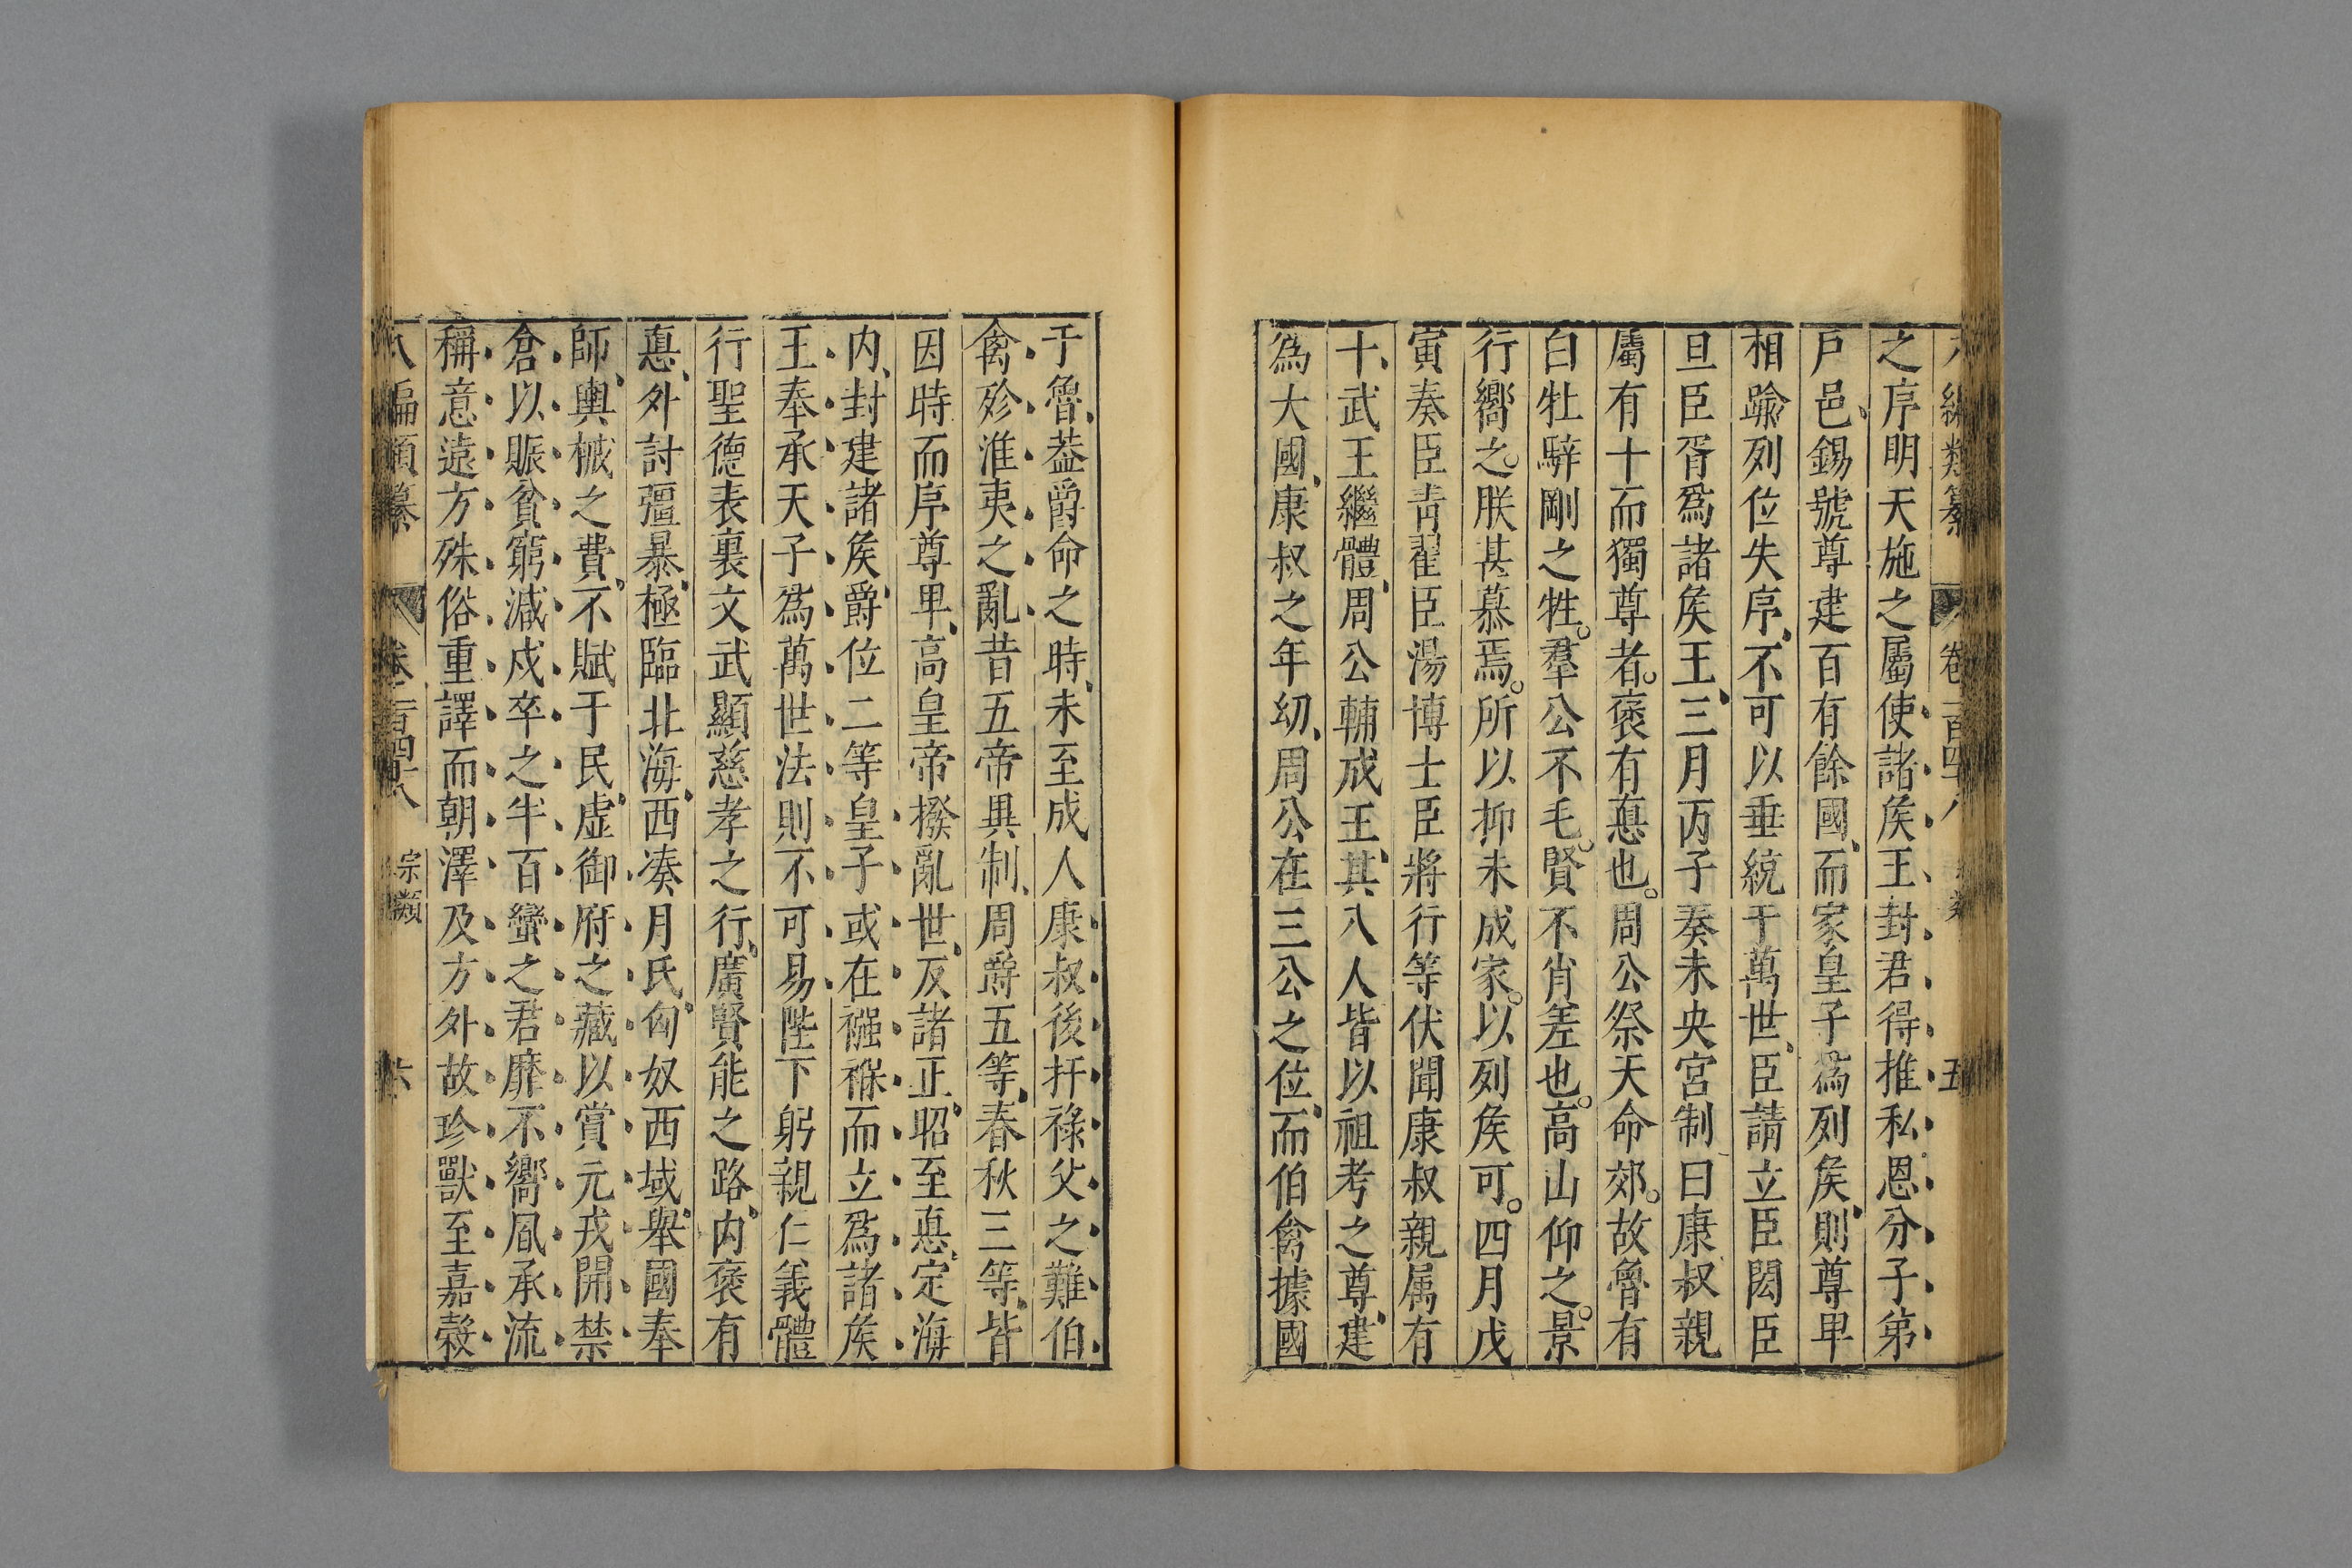 編類纂 卷一百四十八 類 五
之序明天施之屬使諸矦王封君得推私恩分子第
戶邑錫號尊建百有餘國而家皇子爲列矦則尊卑
相踰列位失序不可以垂統于萬世臣請立臣閎臣
旦臣胥爲諸矦王三月丙子奏未央宮制曰康叔親
屬有十而獨尊者。褒有悳也。周公祭天命郊。故魯有
白牡騂剛之牲。羣公不毛。賢不肖差也。高山仰之。景
行嚮之。朕甚慕焉。所以抑未成家。以列矦可。四月戊
寅奏臣青翟臣湯博士臣將行等伏聞康叔親属有
十武王繼體周公輔成王其八人皆以祖考之尊建
爲大國康叔之年幼周公在三公之位而伯禽據國
于魯葢爵命之時未至成人康叔後扞祿父之難伯
禽殄淮夷之亂昔五帝異制周爵五等春秋三等皆
因時而序尊卑高皇帝撥亂世反諸正昭至悳定海
内封建諸矦爵位二等皇子或在襁褓而立爲諸矦
王奉承天子爲萬世法則不可易陛下躬親仁義體
行聖德表裏文武顯慈孝之行廣賢能之路内褒有
悳外討彊暴極臨北海西湊月氏匈奴西域舉國奉
師輿械之費不賦于民虛御府之藏以賞元戎開禁
倉以賑貧窮減戍卒之半百蠻之君靡不嚮風承流
稱意遠方殊俗重譯而朝澤及方外故珍獸至嘉穀
八編類纂 卷一百四十八 宗類 六